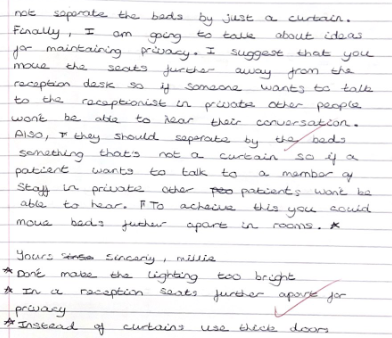 not separate the beds by just a curtain.
Finally, I am going to talk about ideas
for maintaining privacy. I suggest that you
move the seats further away from the
reception desk so if someone wants to talk
to the receptionist in private other people
won't be able to hear their conversation.
Also, they should seperate by the beds
something that's not a curtain so if a
patient wants to talk to a member of
staff in private other patients won't be
able to hear. To acheive this you could
move beds futher apart in rooms. *
Yours sincerly, millie
* Dont make the lighting too bright
* In a reception seats further apart for
privacy
* Instead of curtains use thick doors